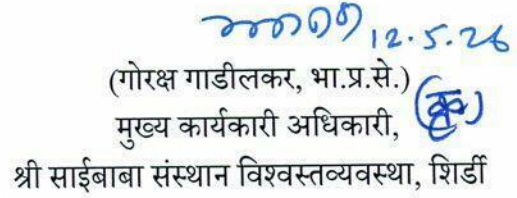 12.5.26
(गोरक्ष गाडीलकर, भा.प्र.से.)
मुख्य कार्यकारी अधिकारी,
श्री साईबाबा संस्थान विश्वस्तव्यवस्था, शिर्डी